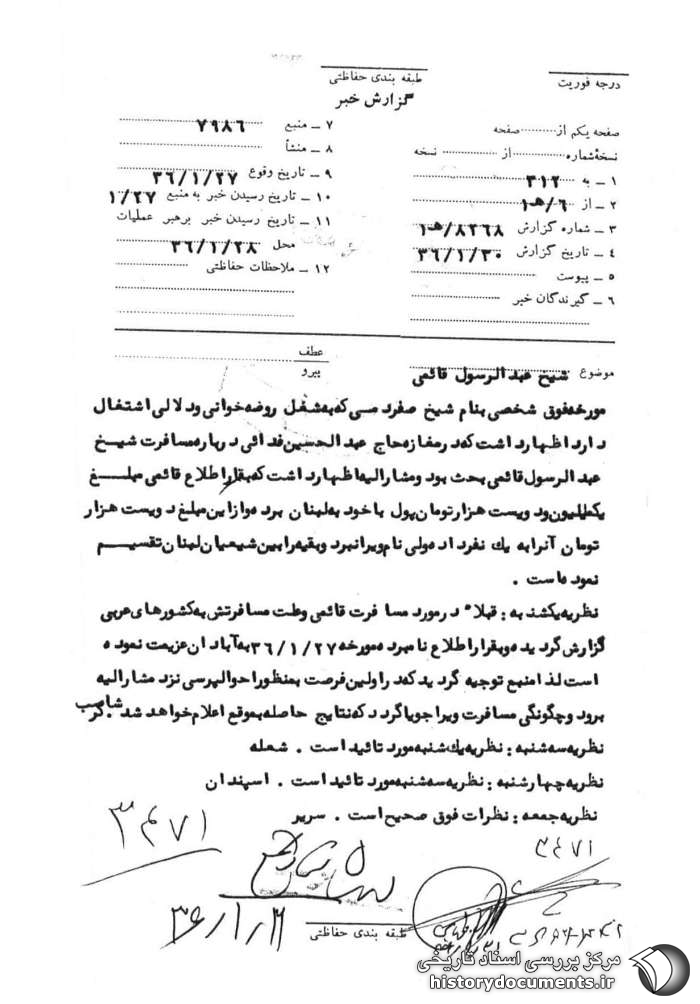 درجه فوریت
طبقه بندی حفاظتی
گزارش خبر
صفحه یکم از صفحه
نسخه شماره از نسخه
۱ ــ به ۳۱۲
۲ ــ از ۶/هـ۱
۳ ــ شماره گزارش ۸۲۶۸/هـ۱
۴ ــ تاریخ گزارش ۳۶/۱/۳۰
۵ ــ پیوست
۶ ــ گیرندگان خبر
۷ ــ منبع ۷۹۸۶
۸ ــ منشأ
۹ ــ تاریخ وقوع ۳۶/۱/۲۷
۱۰ ــ تاریخ رسیدن خبر به منبع ۱/۲۷
۱۱ ــ تاریخ رسیدن خبر برهبر عملیات
محل ۳۶/۱/۲۸
۱۲ ــ ملاحظات حفاظتی
عطف
پیرو
موضوع شیخ عبدالرسول قائمی
مورخه فوق شخصی بنام شیخ صفرد مسی که به شغل روضه خوانی و دلالی اشتغال
دارد اظهار داشت که در مغازه حاج عبدالحسین فدائی درباره مسافرت شیخ
عبدالرسول قائمی بحث بود و مشارالیه اظهار داشت که بقرار اطلاع قائمی مبلغ
یک ملیون و دویست هزار تومان پول با خود به لبنان برده و از این مبلغ دویست هزار
تومان آنرا به یک نفر داده ولی نام ویرا نبرد و بقیه را بین شیعیان لبنان تقسیم
نموده است .
نظریه یکشنبه : قبلاً در مورد مسافرت قائمی و علت مسافرتش به کشورهای عربی
گزارش گردیده و بقرار اطلاع نامبرده مورخه ۳۶/۱/۲۷ به آبادان عزیمت نموده
است لذا منبع توجیه گردید که در اولین فرصت بمنظور احوالپرسی نزد مشارالیه
برود و چگونگی مسافرت ویرا جویا گردد که نتایج حاصله بموقع اعلام خواهد شد .
نظریه سه شنبه : نظریه یک شنبه مورد تائید است . شعله
نظریه چهارشنبه : نظریه سه شنبه مورد تائید است . اسپندان
نظریه جمعه : نظرات فوق صحیح است . سریر
۳۴۷۱
۳۴۷۱
طبقه بندی حفاظتی
مرکز بررسی اسناد تاریخی
historydocuments.ir